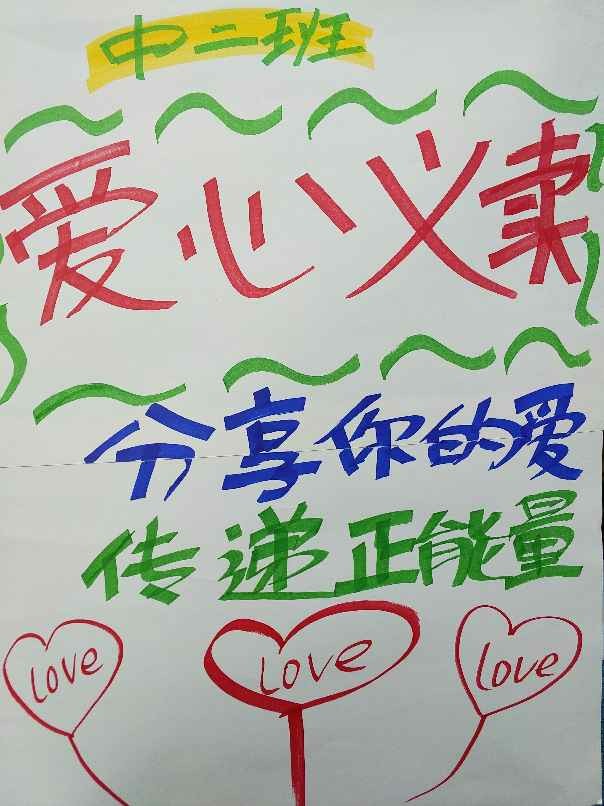 中二班
爱心义卖
分享你的爱
传递正能量
love love love